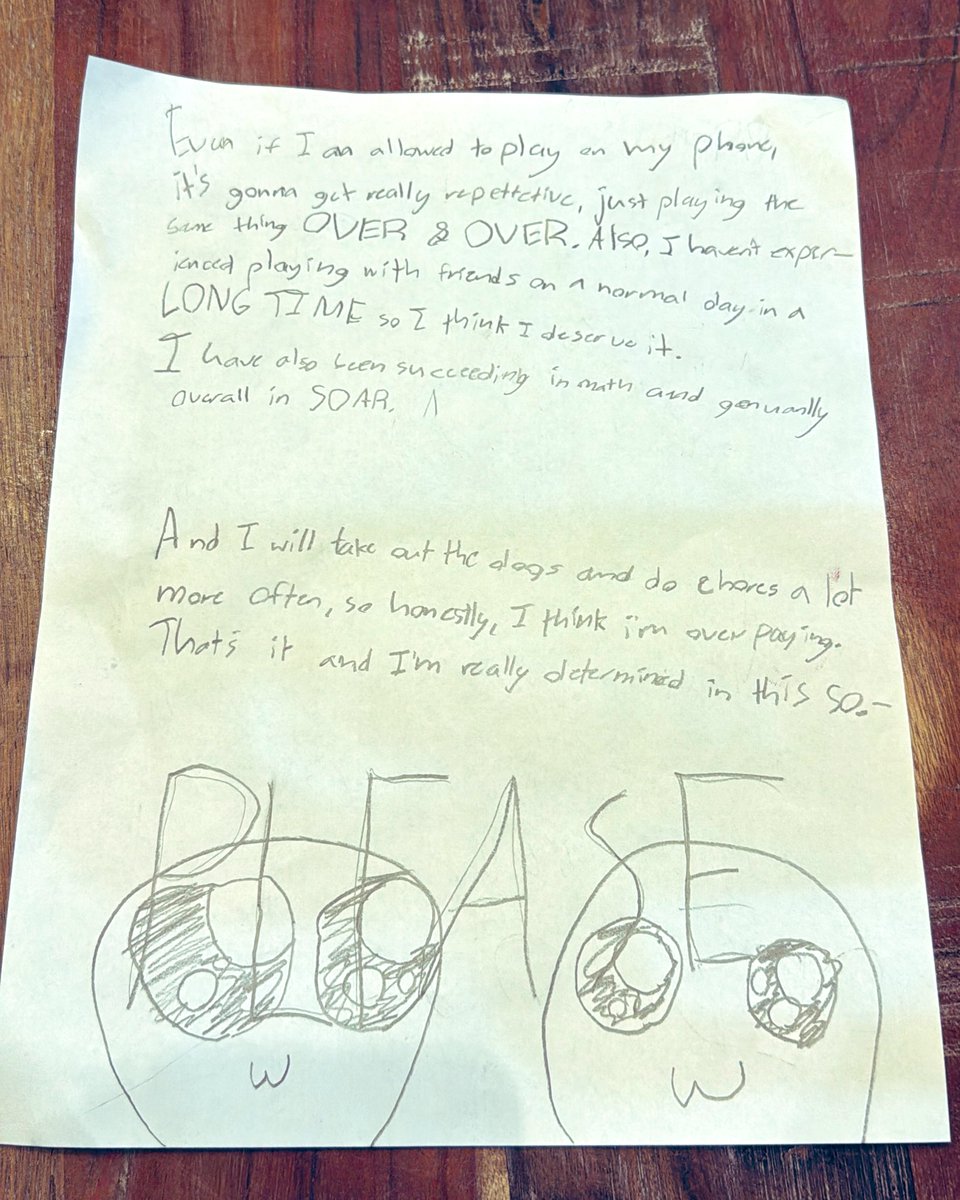 Even if I am allowed to play on my phone,
it's gonna get really repettetive, just playing the
same thing OVER & OVER. Also, I haven't exper-
ienced playing with friends on a normal day in a
LONG TIME so I think I deserve it.
I have also been succeeding in math and genuanlly
overall in SOAR.
And I will take out the dogs and do chores a lot
more often, so honestly, I think i'm over paying.
That's it and I'm really determined in this so.-
PLEASE
W
W